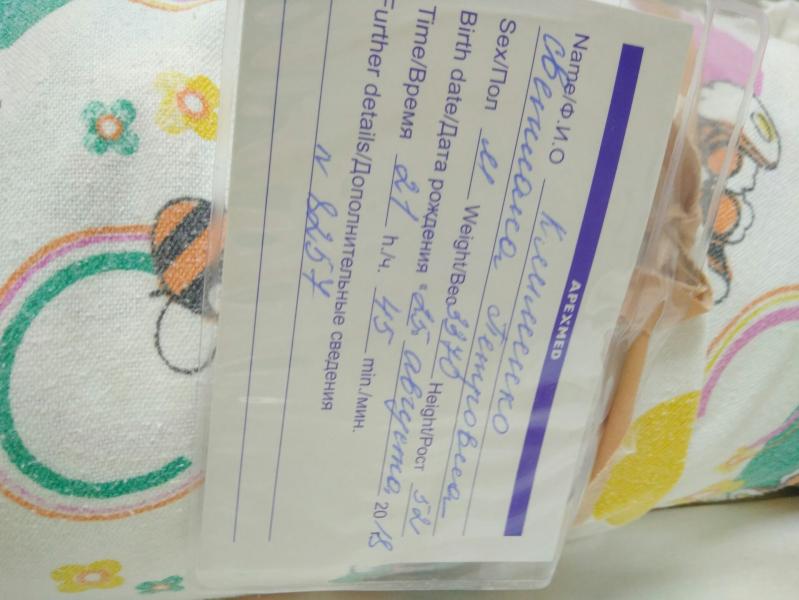 APEXMED
Name/Ф.И.О Клименко
Светлана Петровна
Sex/Пол м Weight/Вес 3370 Height/Рост 52
Birth date/Дата рождения "25 августа 2018
Time/Время 21 h./ч. 45 min./мин.
Further details/Дополнительные сведения
N 8257